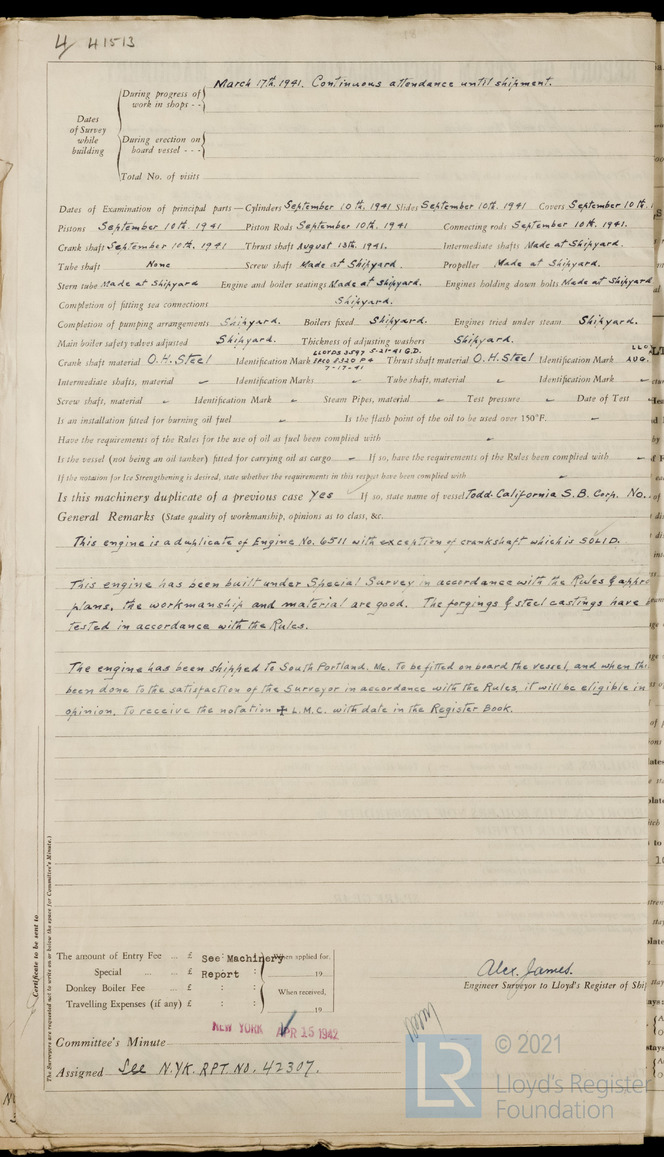 4 41513
March 17th. 1941. Continuous attendance until shipment.
Dates of Survey while building
During progress of work in shops - -
During erection on board vessel - - -
Total No. of visits
Dates of Examination of principal parts—Cylinders September 10th. 1941 Slides September 10th. 1941 Covers September 10th. 1
Pistons September 10th. 1941 Piston Rods September 10th. 1941 Connecting rods September 10th. 1941.
Crank shaft September 10th. 1941 Thrust shaft August 18th. 1941. Intermediate shafts Made at Shipyard.
Tube shaft None Screw shaft Made at Shipyard. Propeller Made at Shipyard.
Stern tube Made at Shipyard Engine and boiler seatings Made at Shipyard. Engines holding down bolts Made at Shipyard
Completion of fitting sea connections Shipyard.
Completion of pumping arrangements Shipyard. Boilers fixed Shipyard. Engines tried under steam Shipyard.
Main boiler safety valves adjusted Shipyard. Thickness of adjusting washers Shipyard.
Crank shaft material O.H. Steel Identification Mark LLOYDS 3597 5-21-41 G.D. 7-17-41 Thrust shaft material O.H. Steel Identification Mark LLO AUG.
Intermediate shafts, material - Identification Marks - Tube shaft, material - Identification Mark -
Screw shaft, material - Identification Mark - Steam Pipes, material - Test pressure - Date of Test -
Is an installation fitted for burning oil fuel - Is the flash point of the oil to be used over 150°F. -
Have the requirements of the Rules for the use of oil as fuel been complied with -
Is the vessel (not being an oil tanker) fitted for carrying oil as cargo - If so, have the requirements of the Rules been complied with -
If the notation for Ice Strengthening is desired, state whether the requirements in this respect have been complied with -
Is this machinery duplicate of a previous case Yes If so, state name of vessel Todd-California S.B. Corp. No.
General Remarks (State quality of workmanship, opinions as to class, &c.
This engine is a duplicate of Engine No. 6511 with exception of crankshaft which is SOLID.
This engine has been built under Special Survey in accordance with the Rules & appro
plans, the workmanship and material are good. The forgings & steel castings have b
tested in accordance with the Rules.
The engine has been shipped to South Portland, Me. to be fitted on board the vessel, and when thi
been done to the satisfaction of the Surveyor in accordance with the Rules, it will be eligible in
opinion, to receive the notation ✠ L.M.C. with date in the Register Book.
Certificate to be sent to
The Surveyors are requested not to write on or below the space for Committee's Minute.)
The amount of Entry Fee ... £ See Machinery When applied for,
Special ... ... £ Report : 19
Donkey Boiler Fee ... £ : : When received,
Travelling Expenses (if any) £ : : 19
Alex. James.
Engineer Surveyor to Lloyd's Register of Ship
NEW YORK APR 15 1942
Committee's Minute
Assigned See N.YK. RPT. NO. 42307.
LR
© 2021
Lloyd's Register
Foundation